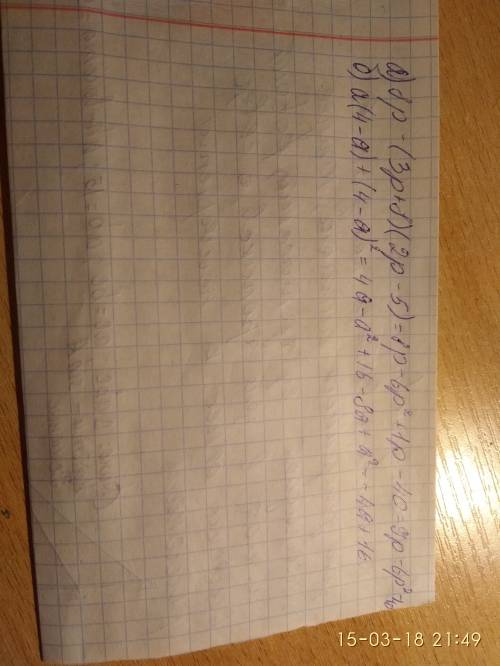 а) 8p - (3p+8)(2p - 5) = 8p - 6p² + 1p - 40 = 9p - 6p² - 40
б) a(4-a) + (4-a)² = 4a - a² + 16 - 8a + a² = -4a + 16
15-03-18 21:49